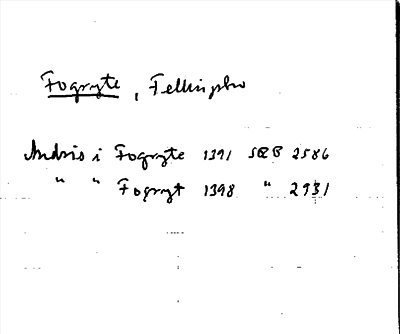 Fogryte, Fellingsbro
Andris i Fogryte 1391 SRB 2586
" " Fogryt 1398 " 2931